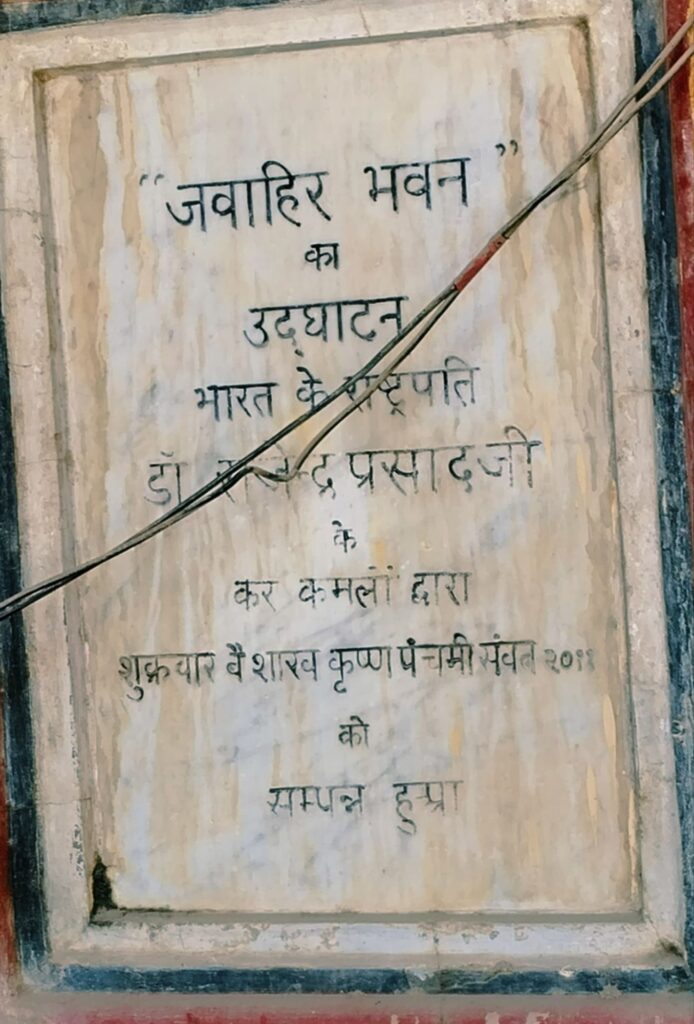 “जवाहिर भवन”
का
उद्घाटन
भारत के राष्ट्रपति
डॉ राजेन्द्र प्रसादजी
के
कर कमलों द्वारा
शुक्रवार वैशाख कृष्ण पंचमी संवत २०११
को
सम्पन्न हुआ